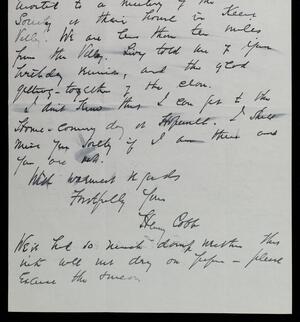 invited to a meeting of the
Society at their house in Keene
Valley. We are less than ten miles
from the Valley. Livy told me of your
birthday reunion, and the good
getting-together of the clan.
I don't know that I can get to the
Home-coming day at Hopewell. I shall
miss you sorely if I am there and
you are not.
With warmest regards
Faithfully Yours
Henry Cobb
We've had so much damp weather this
ink will not dry on paper – please
Excuse the smears